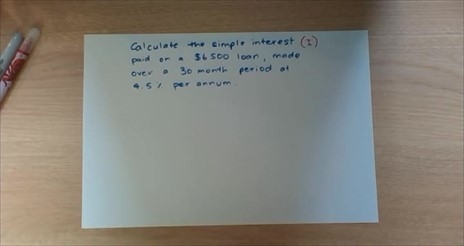 Calculate the simple interest (I)
paid on a $6500 loan, made
over a 30 month period at
4.5% per annum.